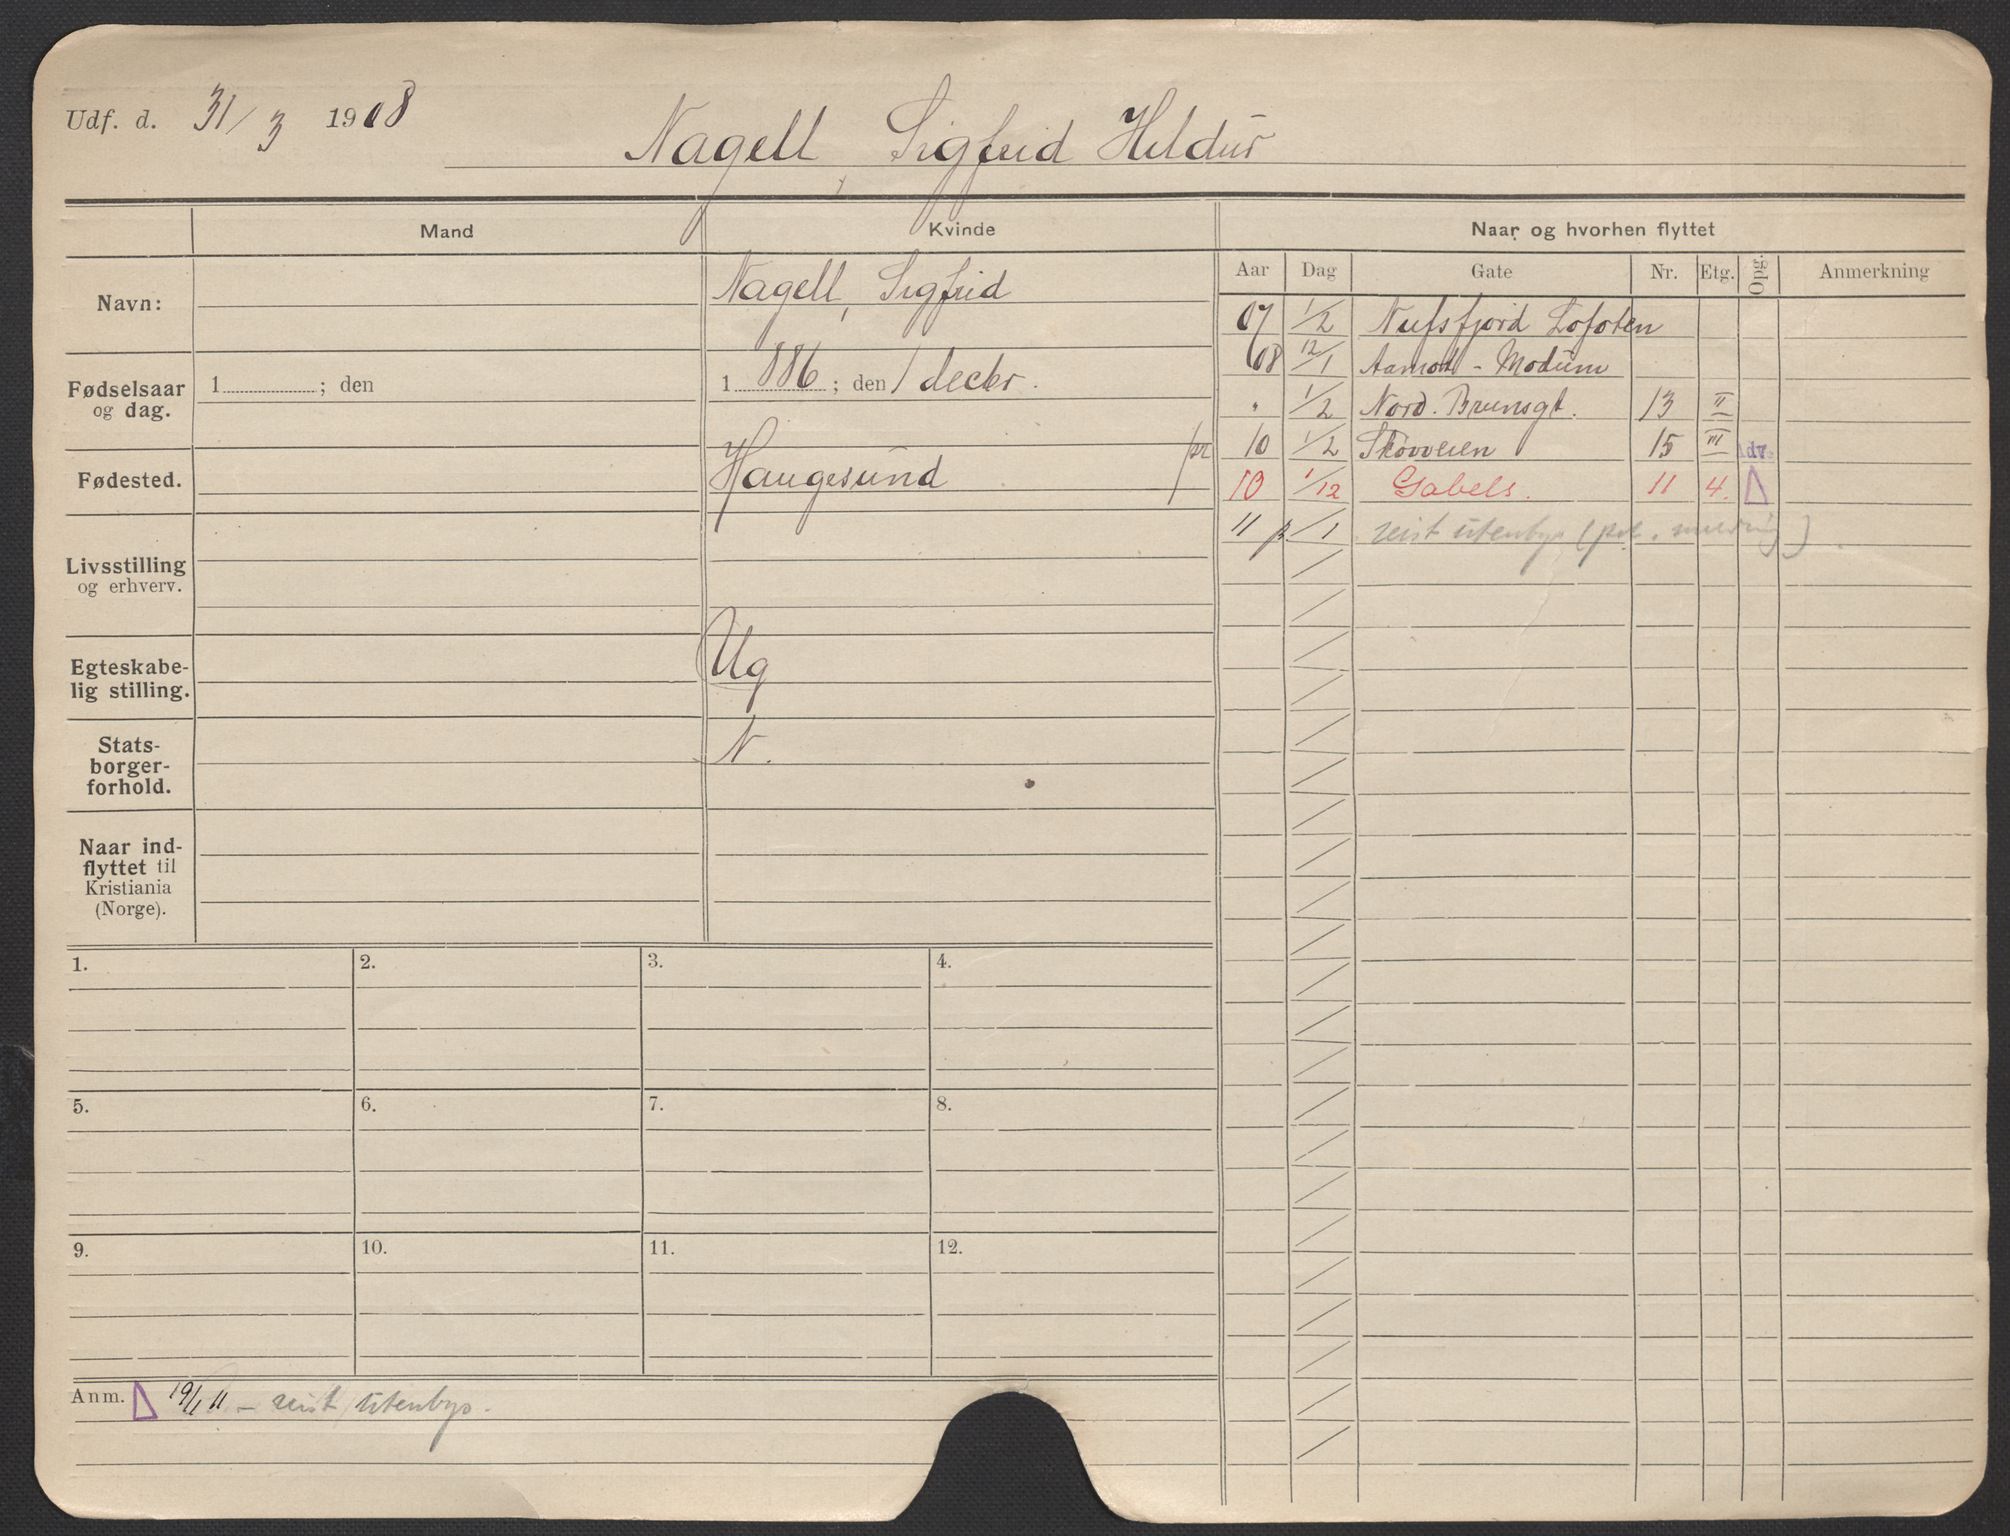 Udf. d. 31/3 1908 Nagell, Sigfrid Hildur
Mand Kvinde Naar og hvorhen flyttet
Aar Dag Gate Nr. Etg. Opg. Anmerkning
Navn: Nagell, Sigfrid
Fødselsaar og dag. 1 ; den 1 886 ; den 1 decbr.
Fødested. Haugesund
Livsstilling og erhverv.
Egteskabe-
lig stilling. Ug
Stats-
borger-
forhold. N.
Naar ind-
flyttet til
Kristiania
(Norge).
07 1/2 Nufsfjord Lofoten
08 12/1 Aamodt - Modum
" 1/2 Nord. Brunsgt. 13 II
pr 10 1/2 Skovveien 15 III Adr.
10 1/12 Gabels. 11 4. Δ
11 /1 reist utenbys (pol. melding)
1. 2. 3. 4.
5. 6. 7. 8.
9. 10. 11. 12.
Anm. Δ 19/1 11 - reist utenbys.